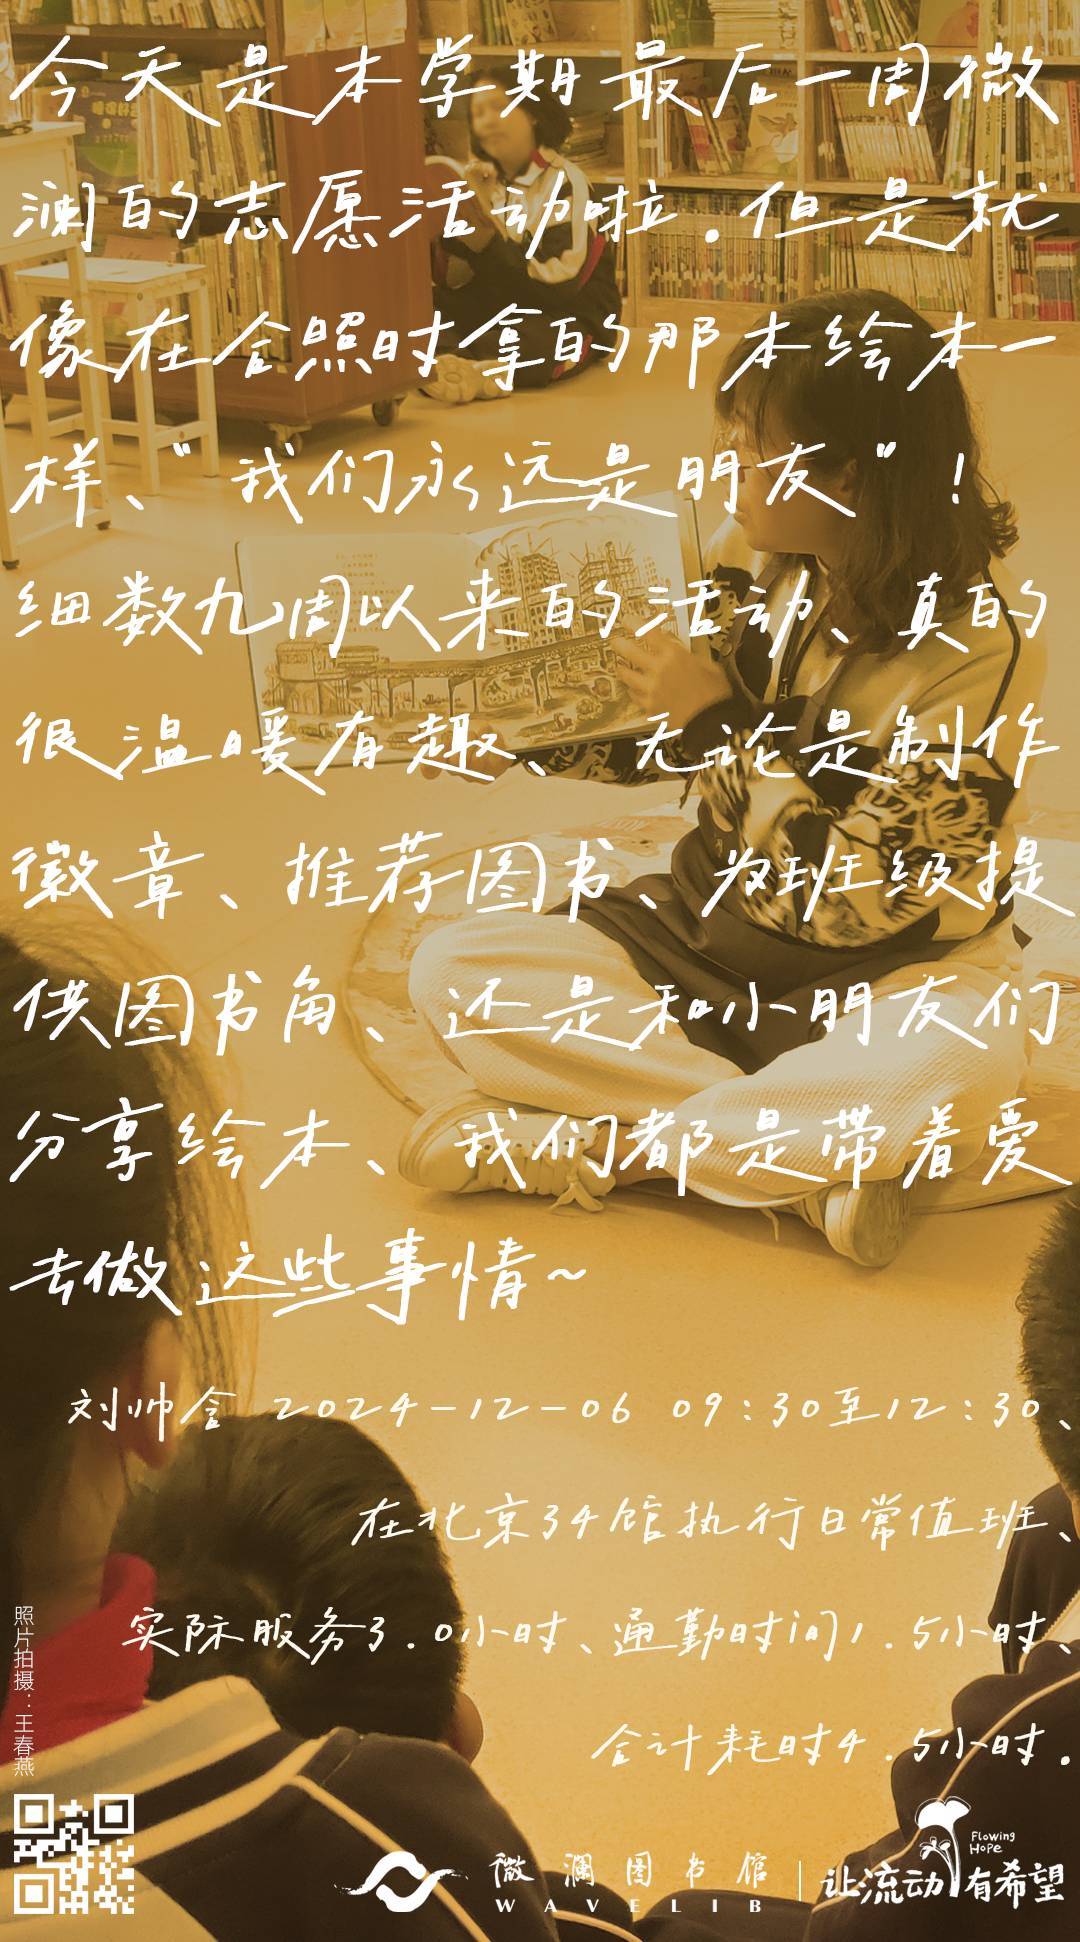 今天是本学期最后一周微
澜的志愿活动啦.但是就
像在合照时拿的那本绘本一
样、“我们永远是朋友”!
细数九周以来的活动、真的
很温暖有趣、无论是制作
徽章、推荐图书、为班级提
供图书角、还是和小朋友们
分享绘本、我们都是带着爱
去做这些事情~
刘帅含 2024-12-06 09:30至12:30、
在北京34馆执行日常值班、
实际服务3.0小时、通勤时间1.5小时、
合计耗时4.5小时.
照片拍摄：王春燕
微澜图书馆
WAVELIB
Flowing
Hope
让流动有希望